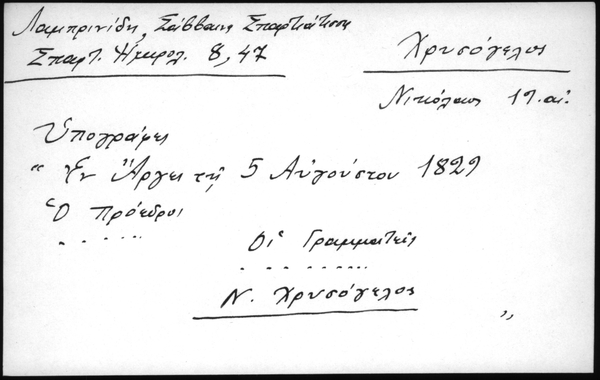 Λαμπρινίδη, Σάββαινα Σπαρτιάτισσα
Σπαρτ. Ημερολ. 8, 47
Χρυσόγελος
Νικόλαος 19. αἰ.
Ὑπογράφει
“ Ἐν Ἄργει τῇ 5 Αὐγούστου 1829
Ὁ Πρόεδρος
. . . . . .
Οἱ Γραμματεῖς
. . . . . . . .
Ν. Χρυσόγελος
„